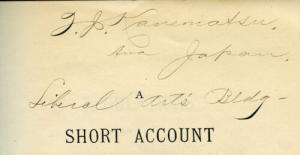 F. J. Kanematsu.
Awa Japan.
A
Liberal Arts Bldg-
SHORT ACCOUNT